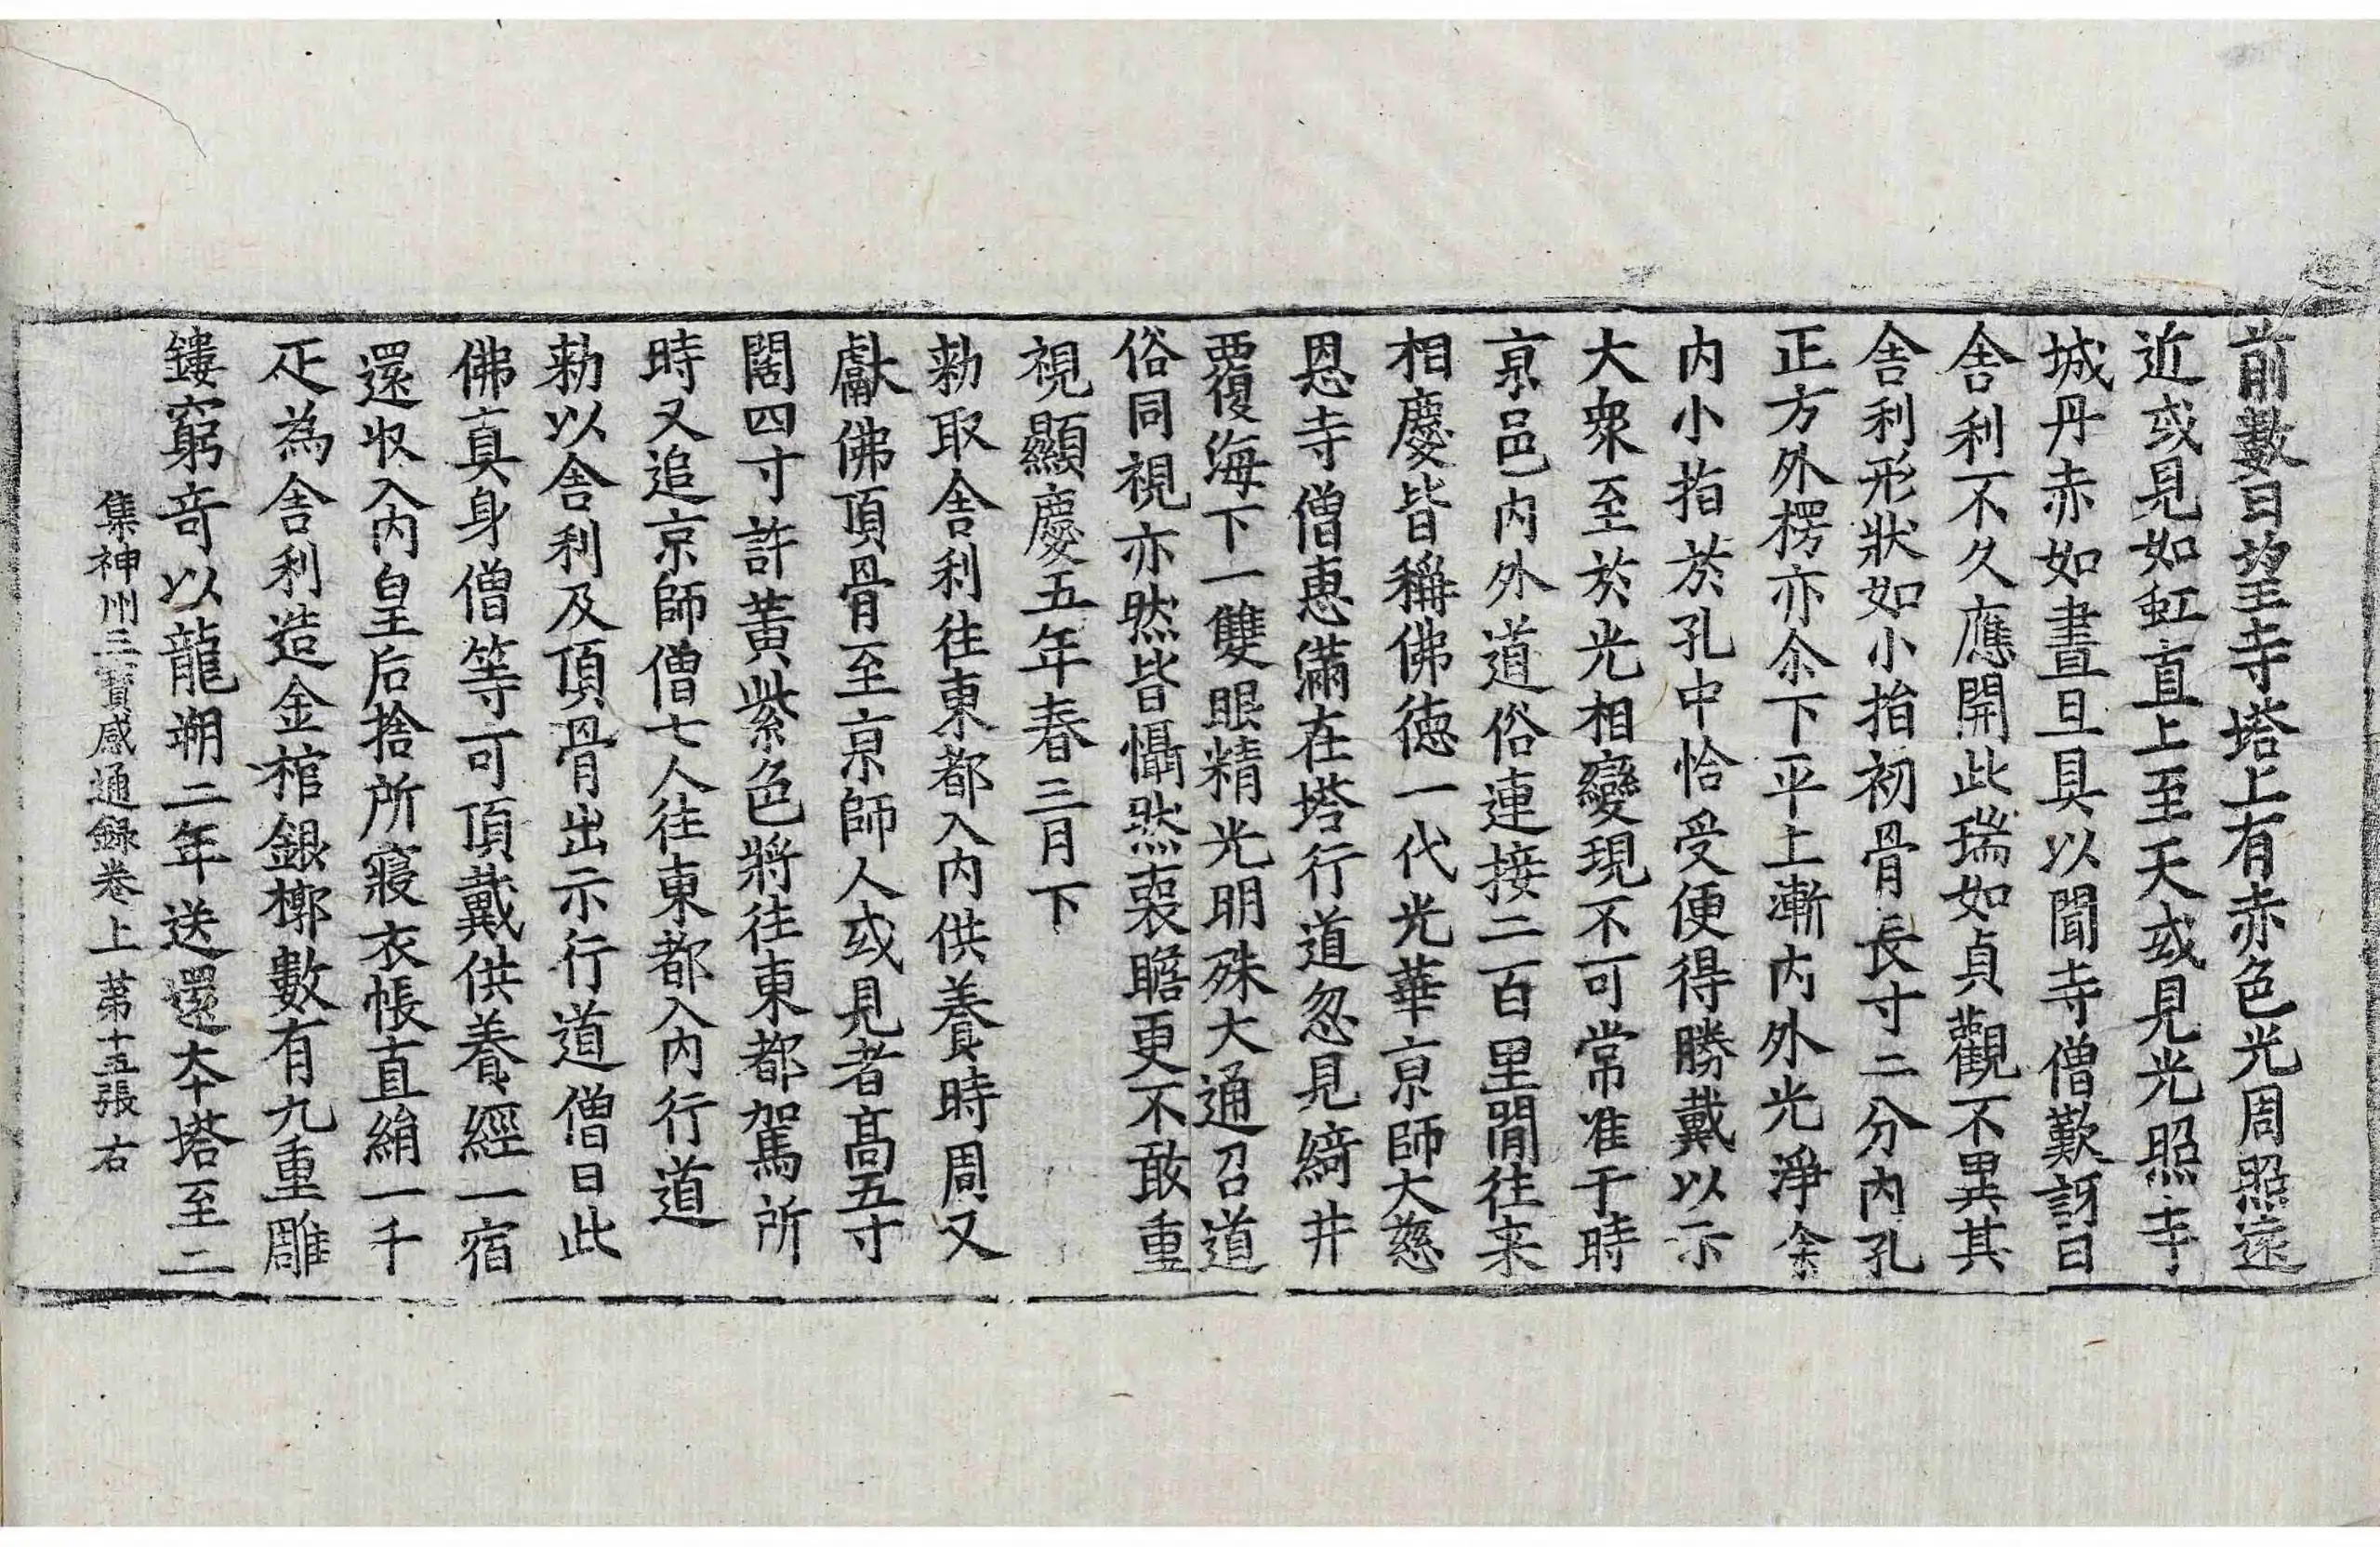 前數日望寺塔上有赤色光周照遠
近或見如虹直上至天或見光照寺
城丹赤如晝旦具以聞寺僧歎訝曰
舍利不久應開此瑞如貞觀不異其
舍利形狀如小指初骨長寸二分內孔
正方外楞亦尒下平上漸內外光淨余
內小指於孔中恰受便得勝戴以示
大衆至於光相變現不可常准于時
京邑內外道俗連接二百里間往来
相慶皆稱佛德一代光華京師大慈
恩寺僧惠滿在塔行道忽見綺井
覆海下一雙眼精光明殊大通召道
俗同視亦然皆懾然喪膽更不敢重
視顯慶五年春三月下
勑取舍利往東都入內供養時周又
獻佛頂骨至京師人或見者高五寸
闊四寸許黃紫色將往東都駕所
時又追京師僧七人往東都入內行道
勑以舍利及頂骨出示行道僧曰此
佛真身僧等可頂戴供養經一宿
還収入內皇后捨所寢衣帳直絹一千
疋為舍利造金棺銀槨數有九重雕
鏤窮奇以龍朔二年送還本塔至二
集神州三寶感通録卷上 第十五張 右